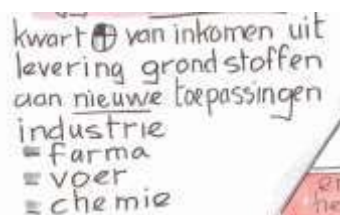 kwart van inkomen uit
levering grondstoffen
aan nieuwe toepassingen
industrie
= farma
= voer
= chemie